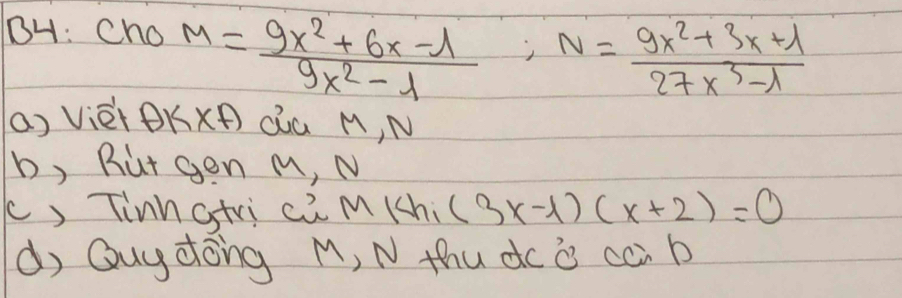 B4: Cho M = (9x² + 6x - 1)/(9x² - 1) ; N = (9x² + 3x + 1)/(27x³ - 1)
a) Viết ĐKXĐ của M, N
b, Rút gọn M, N
c, Tính gtrị củ M khi (3x-1)(x+2) = 0
d, Quy đồng M, N thu dc ở câu b